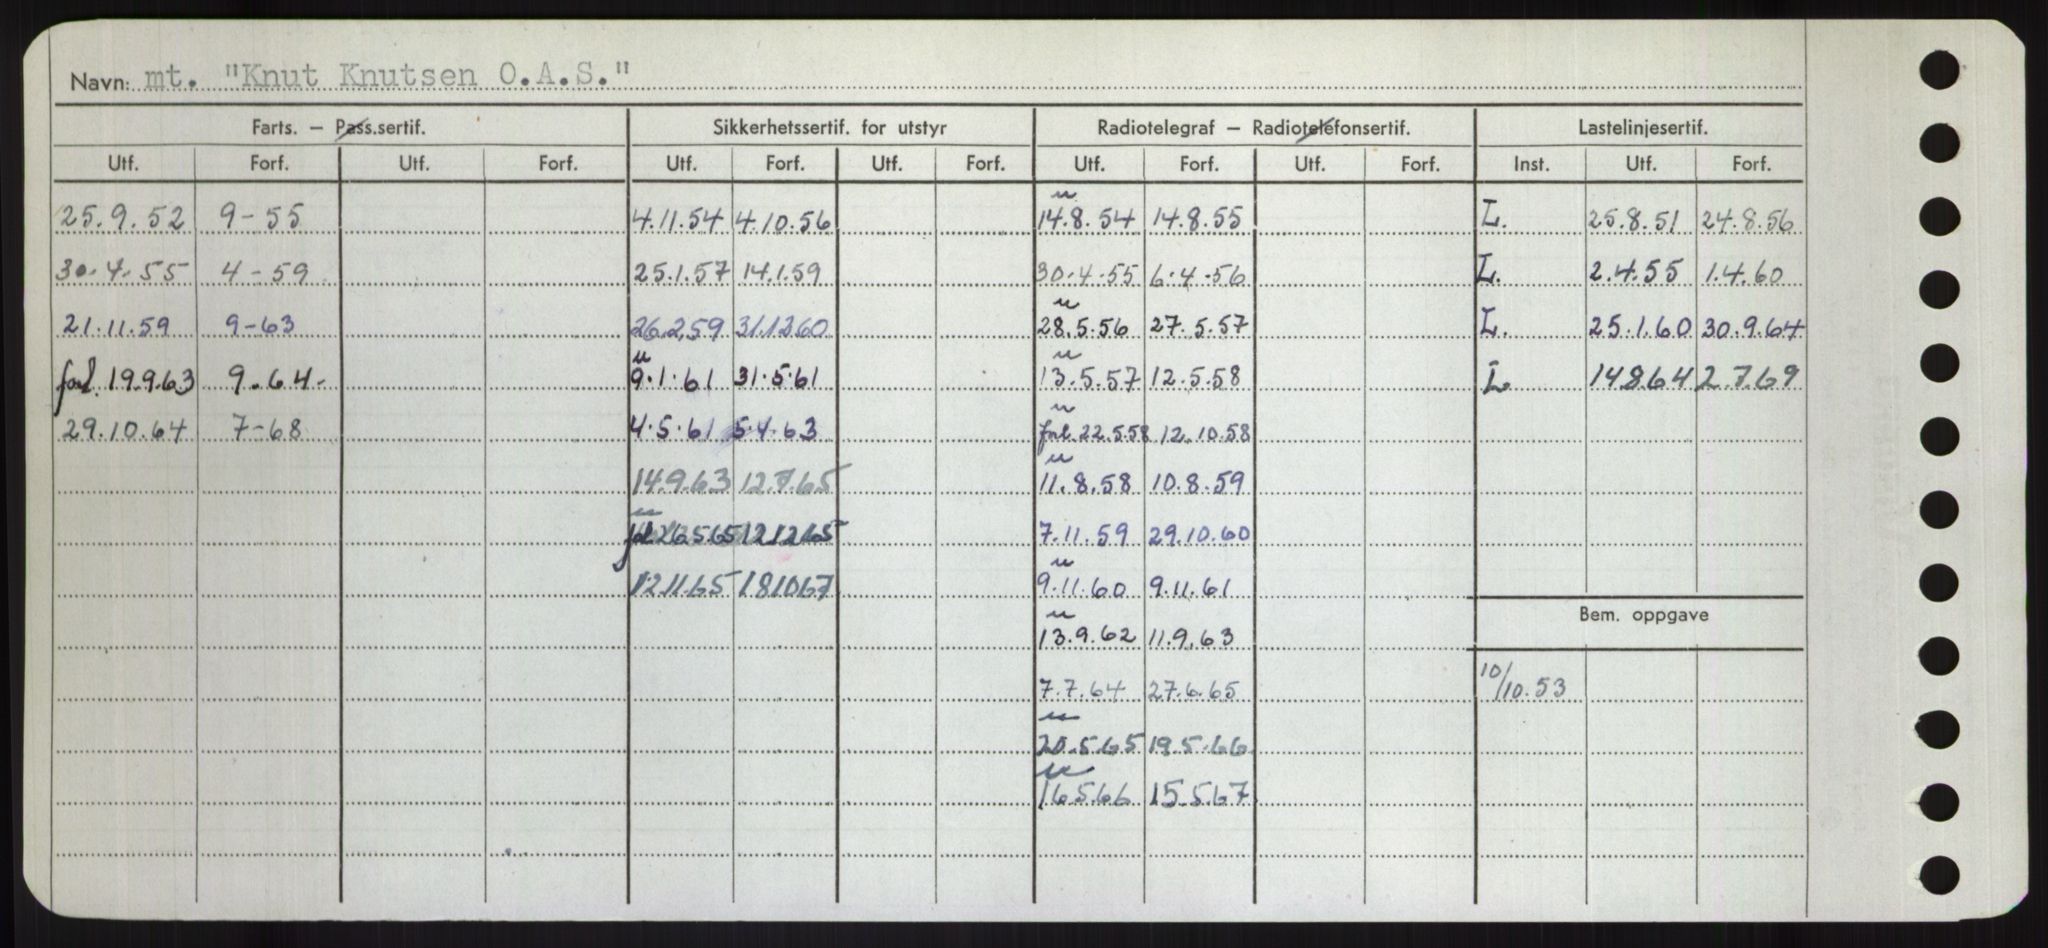 Navn: mt. "Knut Knutsen O.A.S."
Farts. – Pass.sertif. Sikkerhetssertif. for utstyr Radiotelegraf – Radiotelefonsertif. Lastelinjesertif.
Utf. Forf. Utf. Forf. Utf. Forf. Utf. Forf. Utf. Forf. Utf. Forf. Inst. Utf. Forf.
u
25.9.52 9-55 4.11.54 4.10.56 14.8.54 14.8.55 L. 25.8.51 24.8.56
30.4.55 4-59 25.1.57 14.1.59 30.4.55 6.4.56 L. 2.4.55 1.4.60
u
21.11.59 9-63 26.2.59 31.12.60 28.5.56 27.5.57 L. 25.1.60 30.9.64
u u
forl. 19.9.63 9.64- 9.1.61 31.5.61 13.5.57 12.5.58 L 14.8.64 2.7.69
u
29.10.64 7-68 4.5.61 5.4.63 forl. 22.5.58 12.10.58
u
14.9.63 12.7.65 11.8.58 10.8.59
u
26.5.65 12.12.65 7.11.59 29.10.60
u
12.11.65 18.10.67 9.11.60 9.11.61
Bem. oppgave
u
13.9.62 11.9.63
7.7.64 27.6.65 10/10.53
u
20.5.65 19.5.66
u
16.5.66 15.5.67